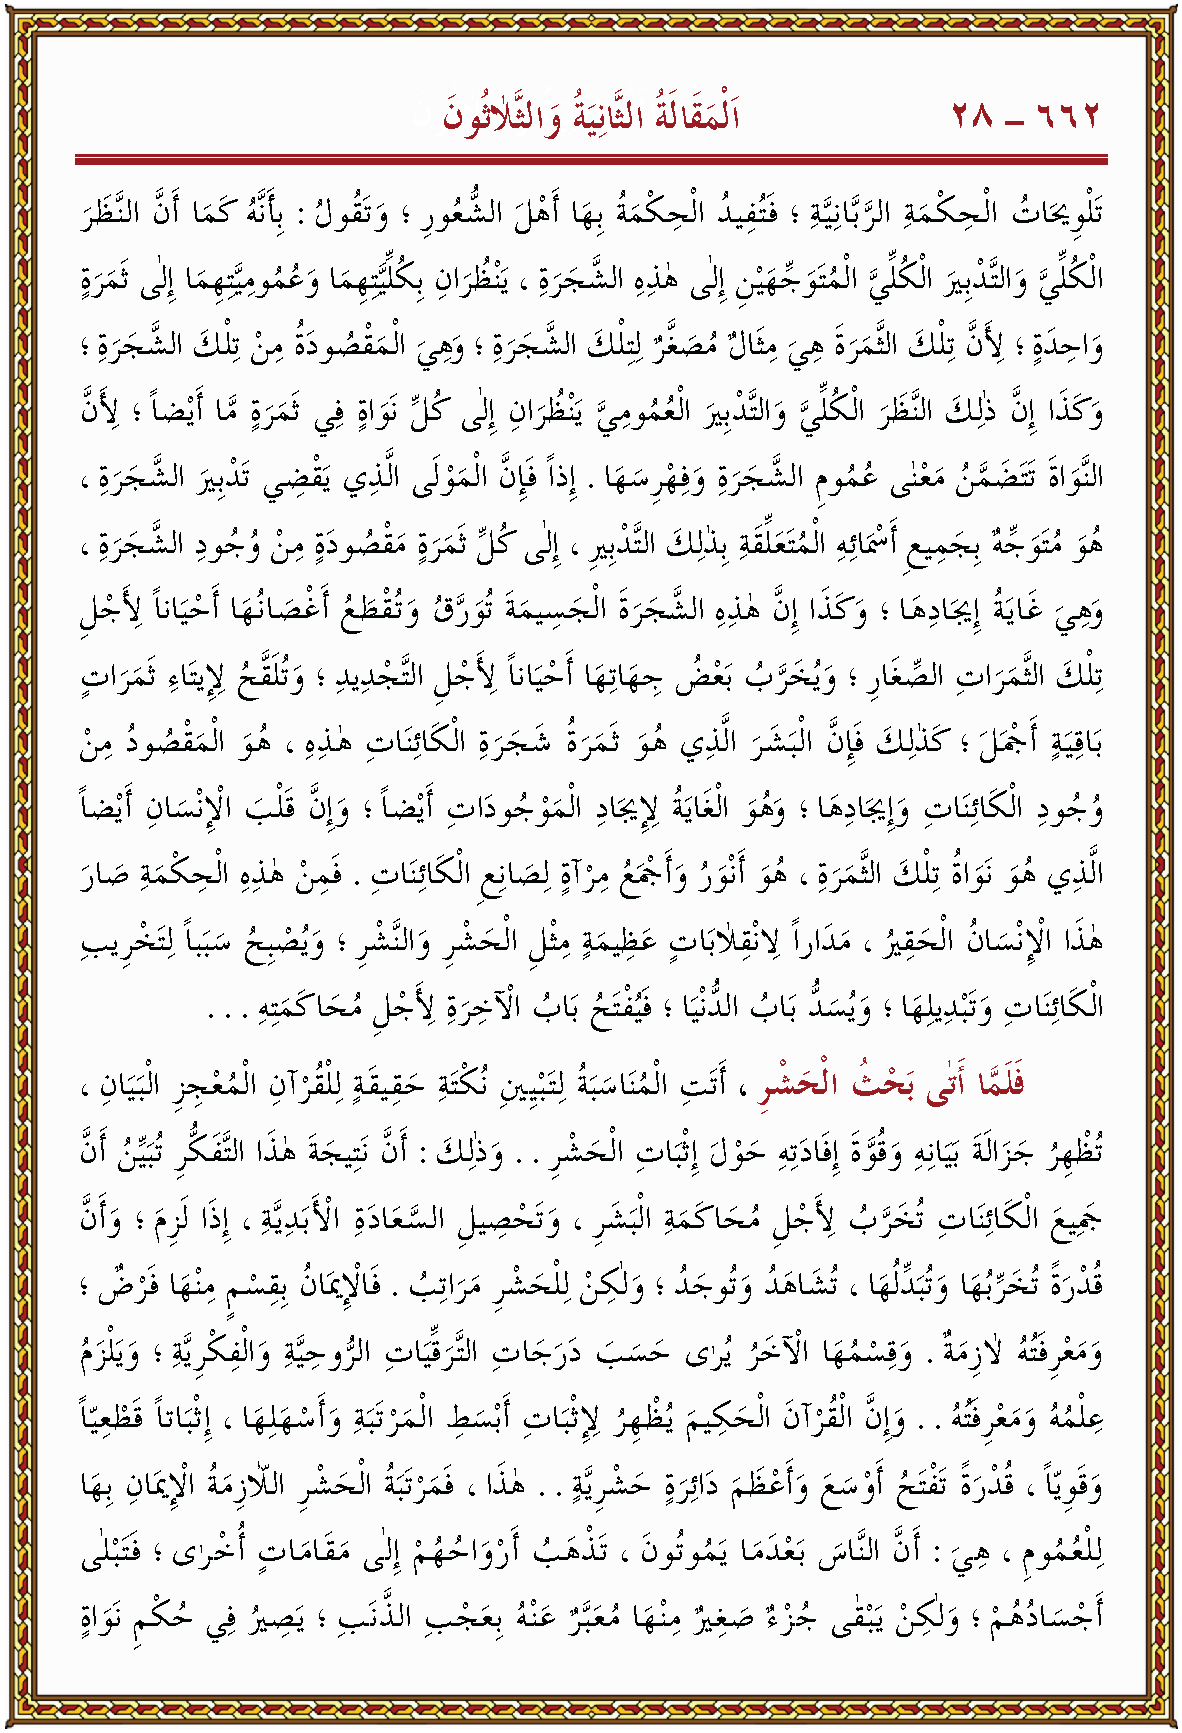 ٢٨ – ٦٦٢ اَلْمَقَالَةُ الثَّانِيَةُ وَالثَّلَاثُونَ
تَلْوِيحَاتُ الْحِكْمَةِ الرَّبَّانِيَّةِ ؛ فَتُفِيدُ الْحِكْمَةُ بِهَا أَهْلَ الشُّعُورِ ؛ وَتَقُولُ : بِأَنَّهُ كَمَا أَنَّ النَّظَرَ
الْكُلِّيَّ وَالتَّدْبِيرَ الْكُلِّيَّ الْمُتَوَجِّهَيْنِ إِلٰى هٰذِهِ الشَّجَرَةِ ، يَنْظُرَانِ بِكُلِّيَّتِهِمَا وَعُمُومِيَّتِهِمَا إِلٰى ثَمَرَةٍ
وَاحِدَةٍ ؛ لِأَنَّ تِلْكَ الثَّمَرَةَ هِيَ مِثَالٌ مُصَغَّرٌ لِتِلْكَ الشَّجَرَةِ ؛ وَهِيَ الْمَقْصُودَةُ مِنْ تِلْكَ الشَّجَرَةِ ؛
وَكَذَا إِنَّ ذٰلِكَ النَّظَرَ الْكُلِّيَّ وَالتَّدْبِيرَ الْعُمُومِيَّ يَنْظُرَانِ إِلٰى كُلِّ نَوَاةٍ فِي ثَمَرَةٍ مَّا أَيْضاً ؛ لِأَنَّ
النَّوَاةَ تَتَضَمَّنُ مَعْنٰى عُمُومِ الشَّجَرَةِ وَفِهْرِسَهَا . إِذاً فَإِنَّ الْمَوْلَى الَّذِي يَقْضِي تَدْبِيرَ الشَّجَرَةِ ،
هُوَ مُتَوَجِّهٌ بِجَمِيعِ أَسْمَائِهِ الْمُتَعَلِّقَةِ بِذٰلِكَ التَّدْبِيرِ ، إِلٰى كُلِّ ثَمَرَةٍ مَقْصُودَةٍ مِنْ وُجُودِ الشَّجَرَةِ ،
وَهِيَ غَايَةُ إِيجَادِهَا ؛ وَكَذَا إِنَّ هٰذِهِ الشَّجَرَةَ الْجَسِيمَةَ تُوَرَّقُ وَتُقْطَعُ أَغْصَانُهَا أَحْيَاناً لِأَجْلِ
تِلْكَ الثَّمَرَاتِ الصِّغَارِ ؛ وَيُخَرَّبُ بَعْضُ جِهَاتِهَا أَحْيَاناً لِأَجْلِ التَّجْدِيدِ ؛ وَتُلَقَّحُ لِإِيتَاءِ ثَمَرَاتٍ
بَاقِيَةٍ أَجْمَلَ ؛ كَذٰلِكَ فَإِنَّ الْبَشَرَ الَّذِي هُوَ ثَمَرَةُ شَجَرَةِ الْكَائِنَاتِ هٰذِهِ ، هُوَ الْمَقْصُودُ مِنْ
وُجُودِ الْكَائِنَاتِ وَإِيجَادِهَا ؛ وَهُوَ الْغَايَةُ لِإِيجَادِ الْمَوْجُودَاتِ أَيْضاً ؛ وَإِنَّ قَلْبَ الْإِنْسَانِ أَيْضاً
الَّذِي هُوَ نَوَاةُ تِلْكَ الثَّمَرَةِ ، هُوَ أَنْوَرُ وَأَجْمَعُ مِرْآةٍ لِصَانِعِ الْكَائِنَاتِ . فَمِنْ هٰذِهِ الْحِكْمَةِ صَارَ
هٰذَا الْإِنْسَانُ الْحَقِيرُ ، مَدَاراً لِانْقِلَابَاتٍ عَظِيمَةٍ مِثْلِ الْحَشْرِ وَالنَّشْرِ ؛ وَيُصْبِحُ سَبَباً لِتَخْرِيبِ
الْكَائِنَاتِ وَتَبْدِيلِهَا ؛ وَيُسَدُّ بَابُ الدُّنْيَا ؛ فَيُفْتَحُ بَابُ الْآخِرَةِ لِأَجْلِ مُحَاكَمَتِهِ . . .
فَلَمَّا أَتٰى بَحْثُ الْحَشْرِ ، أَتَتِ الْمُنَاسَبَةُ لِتَبْيِينِ نُكْتَةِ حَقِيقَةٍ لِلْقُرْآنِ الْمُعْجِزِ الْبَيَانِ ،
تُظْهِرُ جَزَالَةَ بَيَانِهِ وَقُوَّةَ إِفَادَتِهِ حَوْلَ إِثْبَاتِ الْحَشْرِ . . وَذٰلِكَ : أَنَّ نَتِيجَةَ هٰذَا التَّفَكُّرِ تُبَيِّنُ أَنَّ
جَمِيعَ الْكَائِنَاتِ تُخَرَّبُ لِأَجْلِ مُحَاكَمَةِ الْبَشَرِ ، وَتَحْصِيلِ السَّعَادَةِ الْأَبَدِيَّةِ ، إِذَا لَزِمَ ؛ وَأَنَّ
قُدْرَةً تُخَرِّبُهَا وَتُبَدِّلُهَا ، تُشَاهَدُ وَتُوجَدُ ؛ وَلٰكِنْ لِلْحَشْرِ مَرَاتِبُ . فَالْإِيمَانُ بِقِسْمٍ مِنْهَا فَرْضٌ ؛
وَمَعْرِفَتُهُ لَازِمَةٌ . وَقِسْمُهَا الْآخَرُ يُرٰى حَسَبَ دَرَجَاتِ التَّرَقِّيَاتِ الرُّوحِيَّةِ وَالْفِكْرِيَّةِ ؛ وَيَلْزَمُ
عِلْمُهُ وَمَعْرِفَتُهُ . . وَإِنَّ الْقُرْآنَ الْحَكِيمَ يُظْهِرُ لِإِثْبَاتِ أَبْسَطِ الْمَرْتَبَةِ وَأَسْهَلِهَا ، إِثْبَاتاً قَطْعِيّاً
وَقَوِيّاً ، قُدْرَةً تَفْتَحُ أَوْسَعَ وَأَعْظَمَ دَائِرَةٍ حَشْرِيَّةٍ . . هٰذَا ، فَمَرْتَبَةُ الْحَشْرِ اللَّازِمَةُ الْإِيمَانِ بِهَا
لِلْعُمُومِ ، هِيَ : أَنَّ النَّاسَ بَعْدَمَا يَمُوتُونَ ، تَذْهَبُ أَرْوَاحُهُمْ إِلٰى مَقَامَاتٍ أُخْرٰى ؛ فَتَبْلٰى
أَجْسَادُهُمْ ؛ وَلٰكِنْ يَبْقٰى جُزْءٌ صَغِيرٌ مِنْهَا مُعَبَّرٌ عَنْهُ بِعَجْبِ الذَّنَبِ ؛ يَصِيرُ فِي حُكْمِ نَوَاةٍ